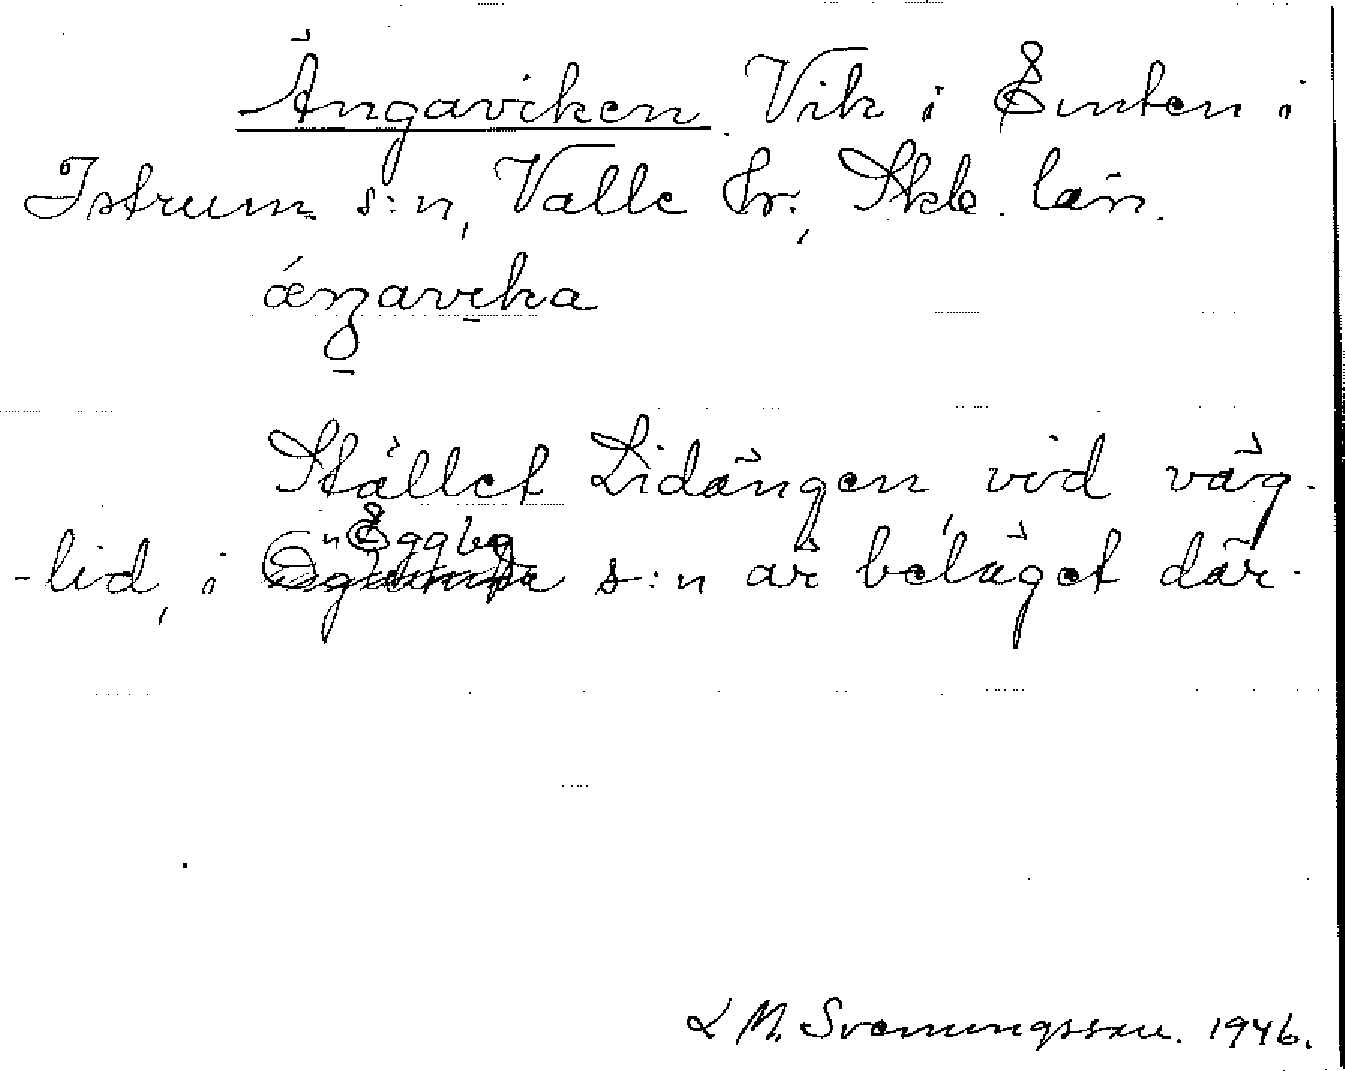 Ängaviken. Vik i Emten i
Istrum s:n, Valle hr., Skb. län.
ǽŋavika
Stället Lidängen vid väg-
n Eggby
-lid, i s:n är beläget där-
L M. Svenungsson. 1946.